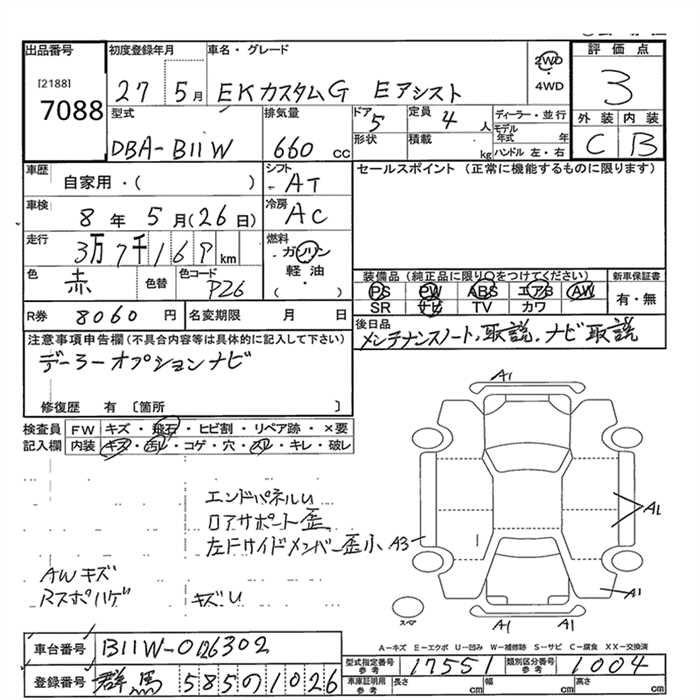 出品番号 初度登録年月 車名・グレード 2WD 4WD 評価点
[2188]
7088 27 5月 EKカスタムG Eアシスト 3
型式 排気量 ドア 5 定員 4人 ディーラー・並行 外装 内装
DBA-B11W 660 CC 形状 積載 kg モデル年式 年 ハンドル 左・右 C B
車歴 自家用・( ) シフト AT セールスポイント (正常に機能するものに限ります)
車検 8年 5月(26日) 冷房 AC
走行 3万7千169km 燃料 ガソリン
軽油・
( )
色 赤 色替 色コード P26
装備品 (純正品に限り○をつけてください) 新車保証書
PS PW ABS エアB AW 有・無
SR ナビ TV カワ
R券 8060円 名変期限 月 日
後日品
メンテナンスノート、取説、ナビ取説
注意事項申告欄(不具合内容等は具体的に記入して下さい)
デーラーオプションナビ
修復歴 有 〔箇所 〕
検査員 FW キズ・飛石・ヒビ割・リペア跡・×要
記入欄 内装 キズ・汚レ・コゲ・穴・スレ・キレ・破レ
A1
エンドパネルU
ロアサポート歪
左Fサイドメンバー歪小 A3
A1
AWキズ
Rスポハゲ キズU
A1
スペア
A1 A1
A-キズ E-エクボ U-凹み W-補修跡 S-サビ C-腐食 XX-交換済
車台番号 B11W-0126302
型式指定番号 参考 17551 類別区分番号 参考 1004
登録番号 群馬 585の1026
車庫証明用 参考 長さ cm 幅 cm 高さ cm